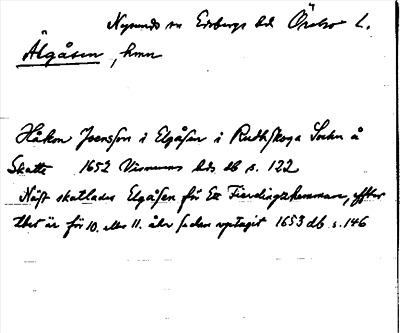 Nysunds sn Edsbergs hd Örebro L.
Älgåsen, hmn
Håkon Joensson i Elgåsen i Rudhskoga Sochn å
Skatte 1652 Visnums hds db s. 122
Näst skatlades Elgåsen för Ett Fierdingzhemman, effter
thet är för 10. eller 11. åhr sedan uptagit 1653 db s. 146